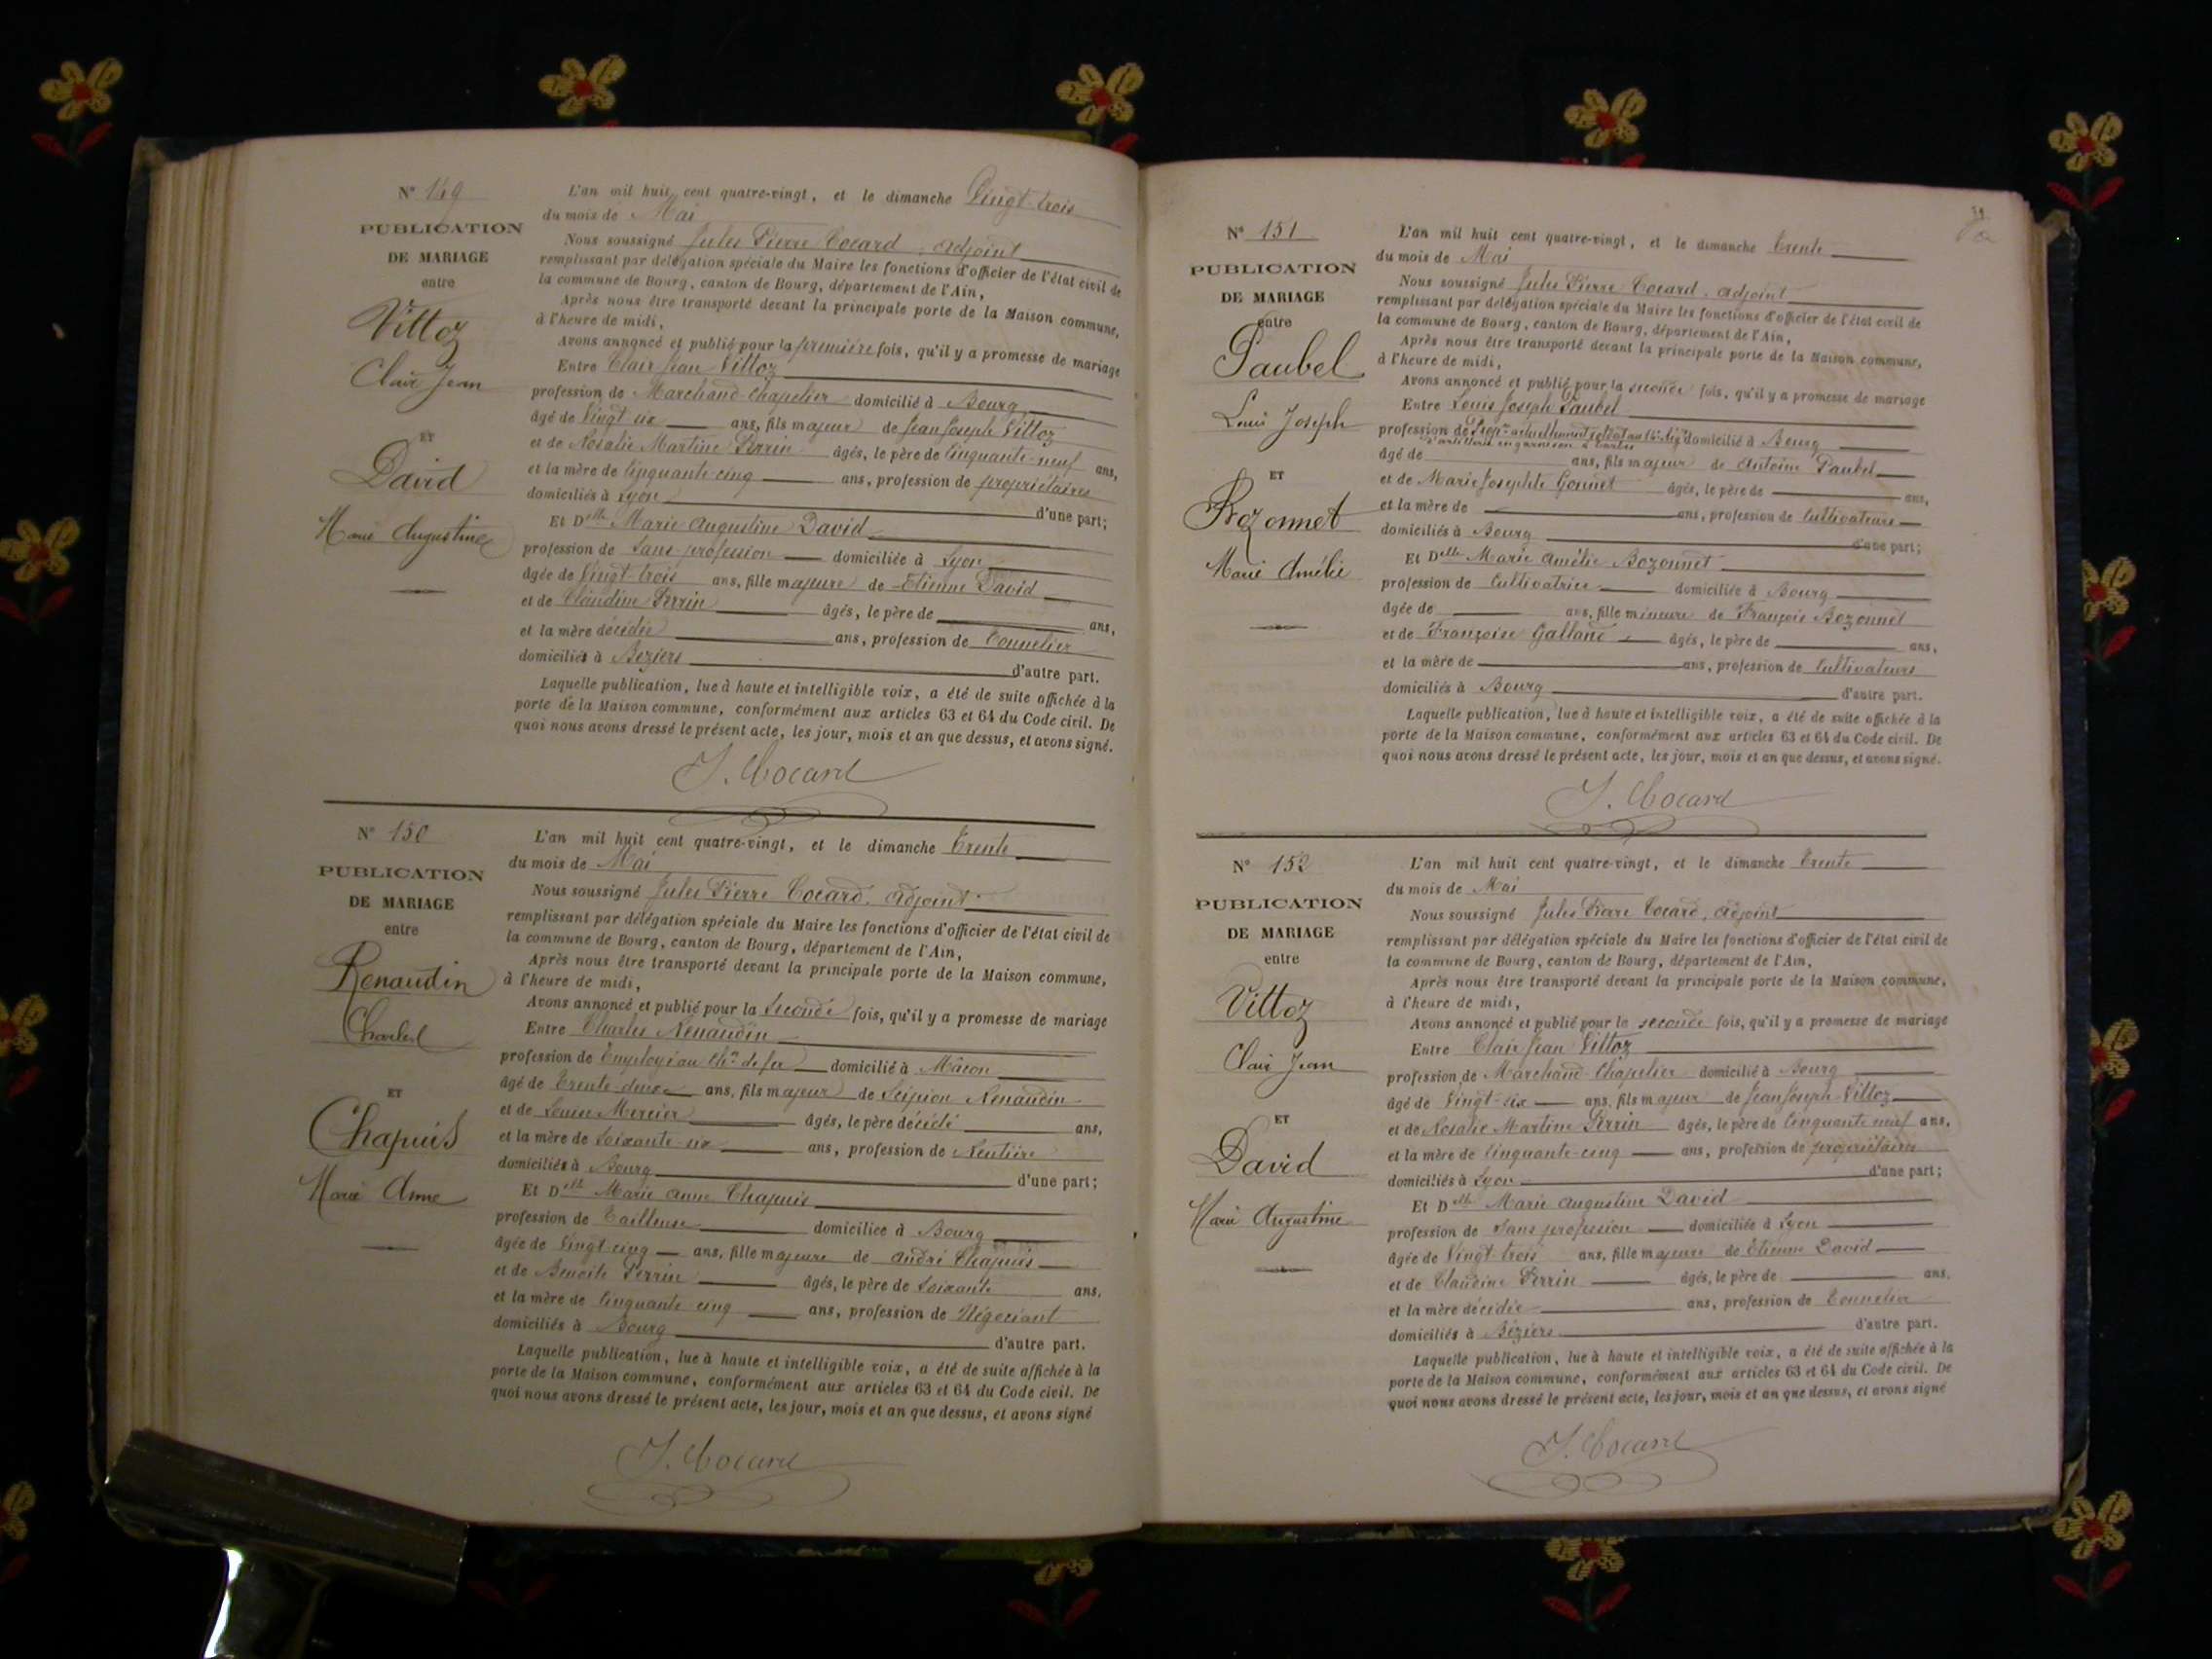 N° 149
PUBLICATION
DE MARIAGE
entre
Vittoz
Clair Jean
ET
David
Marie Augustine
L'an mil huit cent quatre-vingt, et le dimanche Vingt-trois
du mois de Mai
Nous soussigné Jules Pierre Cocard, adjoint
remplissant par délégation spéciale du Maire les fonctions d'officier de l'état civil de
la commune de Bourg, canton de Bourg, département de l'Ain,
Après nous être transporté devant la principale porte de la Maison commune,
à l'heure de midi,
Avons annoncé et publié pour la première fois, qu'il y a promesse de mariage
Entre Clair Jean Vittoz
profession de Marchand Chapelier domicilié à Bourg
âgé de Vingt six ans, fils majeur de Jean Joseph Vittoz
et de Rosalie Martine Perrin âgés, le père de Cinquante-neuf ans,
et la mère de Cinquante-cinq ans, profession de propriétaires
domiciliés à Lyon d'une part;
Et Delle Marie Augustine David
profession de Sans profession domiciliée à Lyon
âgée de Vingt-trois ans, fille majeure de Etienne David
et de Claudine Perrin âgés, le père de ans,
et la mère décédée ans, profession de Tonnelier
domiciliés à Beziers d'autre part.
Laquelle publication, lue à haute et intelligible voix, a été de suite affichée à la
porte de la Maison commune, conformément aux articles 63 et 64 du Code civil. De
quoi nous avons dressé le présent acte, les jour, mois et an que dessus, et avons signé.
J. Cocard
N° 150
PUBLICATION
DE MARIAGE
entre
Renaudin
Charles
ET
Chapuis
Marie Anne
L'an mil huit cent quatre-vingt, et le dimanche Trente
du mois de Mai
Nous soussigné Jules Pierre Cocard, adjoint
remplissant par délégation spéciale du Maire les fonctions d'officier de l'état civil de
la commune de Bourg, canton de Bourg, département de l'Ain,
Après nous être transporté devant la principale porte de la Maison commune,
à l'heure de midi,
Avons annoncé et publié pour la Seconde fois, qu'il y a promesse de mariage
Entre Charles Renaudin
profession de Employé au Ch.n de fer domicilié à Mâcon
âgé de Trente-deux ans, fils majeur de Scipion Renaudin
et de Louise Mercier âgés, le père décédé ans,
et la mère de Soixante-six ans, profession de Rentière
domiciliés à Bourg d'une part;
Et Delle Marie Anne Chapuis
profession de Tailleuse domiciliée à Bourg
âgée de Vingt-cinq ans, fille majeure de André Chapuis
et de Benoite Perrin âgés, le père de Soixante ans,
et la mère de Cinquante cinq ans, profession de Négociant
domiciliés à Bourg d'autre part.
Laquelle publication, lue à haute et intelligible voix, a été de suite affichée à la
porte de la Maison commune, conformément aux articles 63 et 64 du Code civil. De
quoi nous avons dressé le présent acte, les jour, mois et an que dessus, et avons signé
J. Cocard
N° 151
PUBLICATION
DE MARIAGE
entre
Paubel
Louis Joseph
ET
Bozonnet
Marie Amélie
L'an mil huit cent quatre-vingt, et le dimanche Trente
du mois de Mai
Nous soussigné Jules Pierre Cocard, adjoint
remplissant par délégation spéciale du Maire les fonctions d'officier de l'état civil de
la commune de Bourg, canton de Bourg, département de l'Ain,
Après nous être transporté devant la principale porte de la Maison commune,
à l'heure de midi,
Avons annoncé et publié pour la seconde fois, qu'il y a promesse de mariage
Entre Louis Joseph Paubel
profession de actuellement soldat au domicilié à Bourg
d'artillerie en garnison à
âgé de ans, fils majeur de Antoine Paubel
et de Marie Josephte Gonnet âgés, le père de ans,
et la mère de ans, profession de Cultivateurs
domiciliés à Bourg d'une part;
Et Delle Marie Amélie Bozonnet
profession de Cultivatrice domiciliée à Bourg
âgée de ans, fille mineure de François Bozonnet
et de Françoise Galland âgés, le père de ans,
et la mère de ans, profession de Cultivateurs
domiciliés à Bourg d'autre part.
Laquelle publication, lue à haute et intelligible voix, a été de suite affichée à la
porte de la Maison commune, conformément aux articles 63 et 64 du Code civil. De
quoi nous avons dressé le présent acte, les jour, mois et an que dessus, et avons signé.
J. Cocard
N° 152
PUBLICATION
DE MARIAGE
entre
Vittoz
Clair Jean
ET
David
Marie Augustine
L'an mil huit cent quatre-vingt, et le dimanche Trente
du mois de Mai
Nous soussigné Jules Pierre Cocard, adjoint
remplissant par délégation spéciale du Maire les fonctions d'officier de l'état civil de
la commune de Bourg, canton de Bourg, département de l'Ain,
Après nous être transporté devant la principale porte de la Maison commune,
à l'heure de midi,
Avons annoncé et publié pour la seconde fois, qu'il y a promesse de mariage
Entre Clair Jean Vittoz
profession de Marchand Chapelier domicilié à Bourg
âgé de Vingt-six ans, fils majeur de Jean Joseph Vittoz
et de Rosalie Martine Perrin âgés, le père de Cinquante neuf ans,
et la mère de Cinquante-cinq ans, profession de propriétaires
domiciliés à Lyon d'une part;
Et Delle Marie Augustine David
profession de Sans profession domiciliée à Lyon
âgée de Vingt-trois ans, fille majeure de Etienne David
et de Claudine Perrin âgés, le père de ans,
et la mère décédée ans, profession de Tonnelier
domiciliés à Béziers d'autre part.
Laquelle publication, lue à haute et intelligible voix, a été de suite affichée à la
porte de la Maison commune, conformément aux articles 63 et 64 du Code civil. De
quoi nous avons dressé le présent acte, les jour, mois et an que dessus, et avons signé
J. Cocard